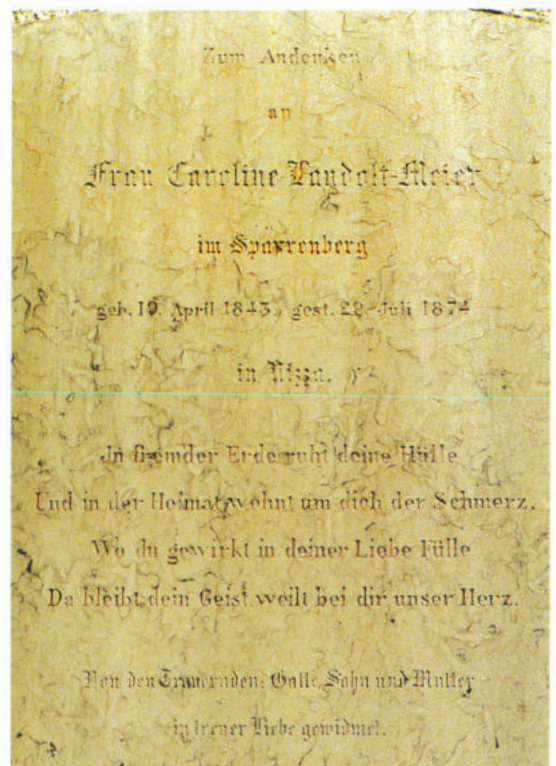 Zum Andenken
an
Frau Caroline Landolt-Meier
im Sparrenberg
geb. 19. April 1843, gest. 22. Juli 1874
in Nizza.
In fremder Erde ruht deine Hülle
Und in der Heimat wohnt um dich der Schmerz.
Wo du gewirkt in deiner Liebe Fülle
Da bleibt dein Geist weilt bei dir unser Herz.
Von den Trauernden: Gatte, Sohn und Mutter
in treuer Liebe gewidmet.